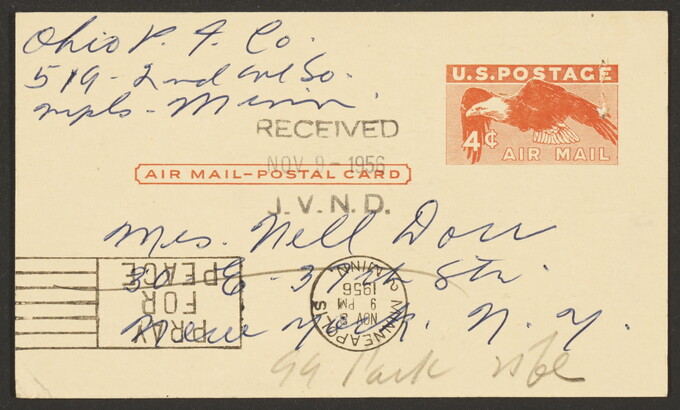 Ohio P. A. Co.
519 - 2nd Ave So.
mpls - Minn.
U.S. POSTAGE
4¢
AIR MAIL
RECEIVED
NOV 9 - 1956
AIR MAIL-POSTAL CARD
J.V.N.D.
Mrs. Nell Dorr
30 E - 37th Str.
New York. N. Y.
PRAY
FOR
PEACE
MINNEAPOLIS
MINN.
NOV 8
9 PM
1956
99 Park